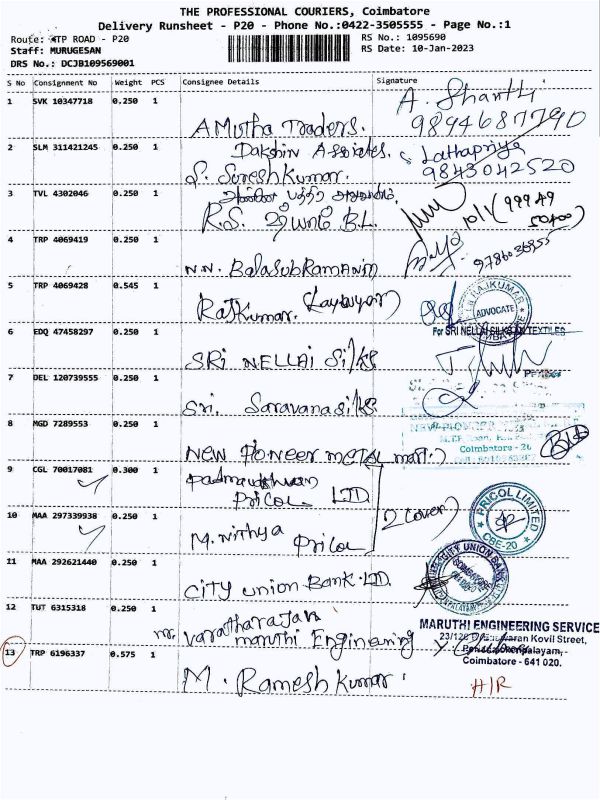 THE PROFESSIONAL COURIERS, Coimbatore
Delivery Runsheet - P20 - Phone No.:0422-3505555 - Page No.:1
Route: TP ROAD - P20
RS No.: 1095690
Staff: MURUGESAN
RS Date: 10-Jan-2023
DRS No.: DCJB109569001
S No Consignment No Weight PCS Consignee Details Signature
1 SVK 10347718 0.250 1
Amutha Traders.
A. Shanthi
9894687790
2 SLM 311421245 0.250 1
Dakshin Associates.
S. Sureshkumar.
Lathapriya
9843042520
3 TVL 4302046 0.250 1
R.S. B.L.
10/1 99949
4 TRP 4069419 0.250 1
N.N. Balasubramanim
5 TRP 4069428 0.545 1
Rajkumar.
ADVOCATE
6 EDQ 47458297 0.250 1
For SRI NELLAI SILKS TEXTILES
SRi NELLAi Silks
7 DEL 120739555 0.250 1
Sri. Saravana silks
8 MGD 7289553 0.250 1
New Pioneer metal mart.
Coimbatore - 26
9 CGL 70017081 0.300 1
Pricol LTD
10 MAA 297339938 0.250 1
M. Nithya Pricol
2 Cover
PRICOL LIMITED
CBE-20
11 MAA 292621440 0.250 1
City Union Bank. LTD.
CITY UNION BANK
12 TUT 6315318 0.250 1
Mr. Varatharajan
maruthi Engineering
MARUTHI ENGINEERING SERVICE
Kovil Street,
Coimbatore - 641 020.
13 TRP 6196337 0.575 1
M. Ramesh Kumar
H/R